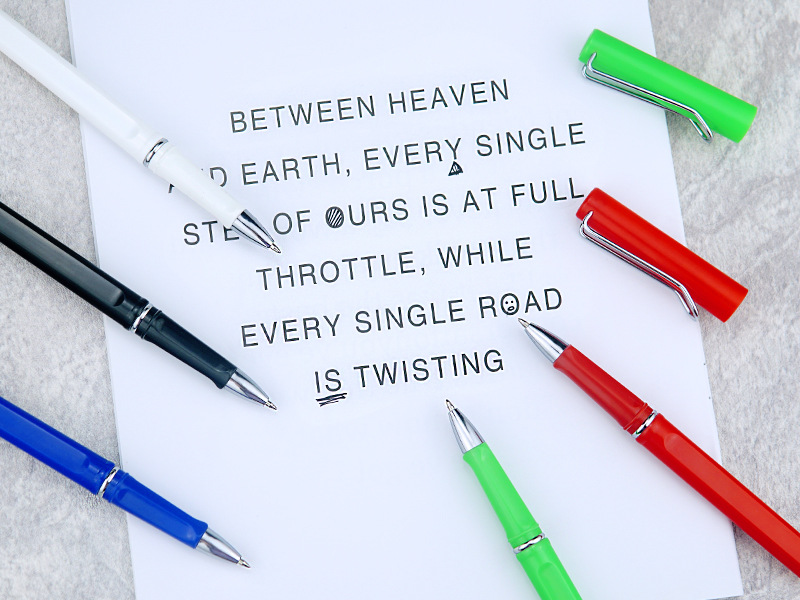 BETWEEN HEAVEN
AND EARTH, EVERY SINGLE
STEP OF OURS IS AT FULL
THROTTLE, WHILE
EVERY SINGLE ROAD
IS TWISTING